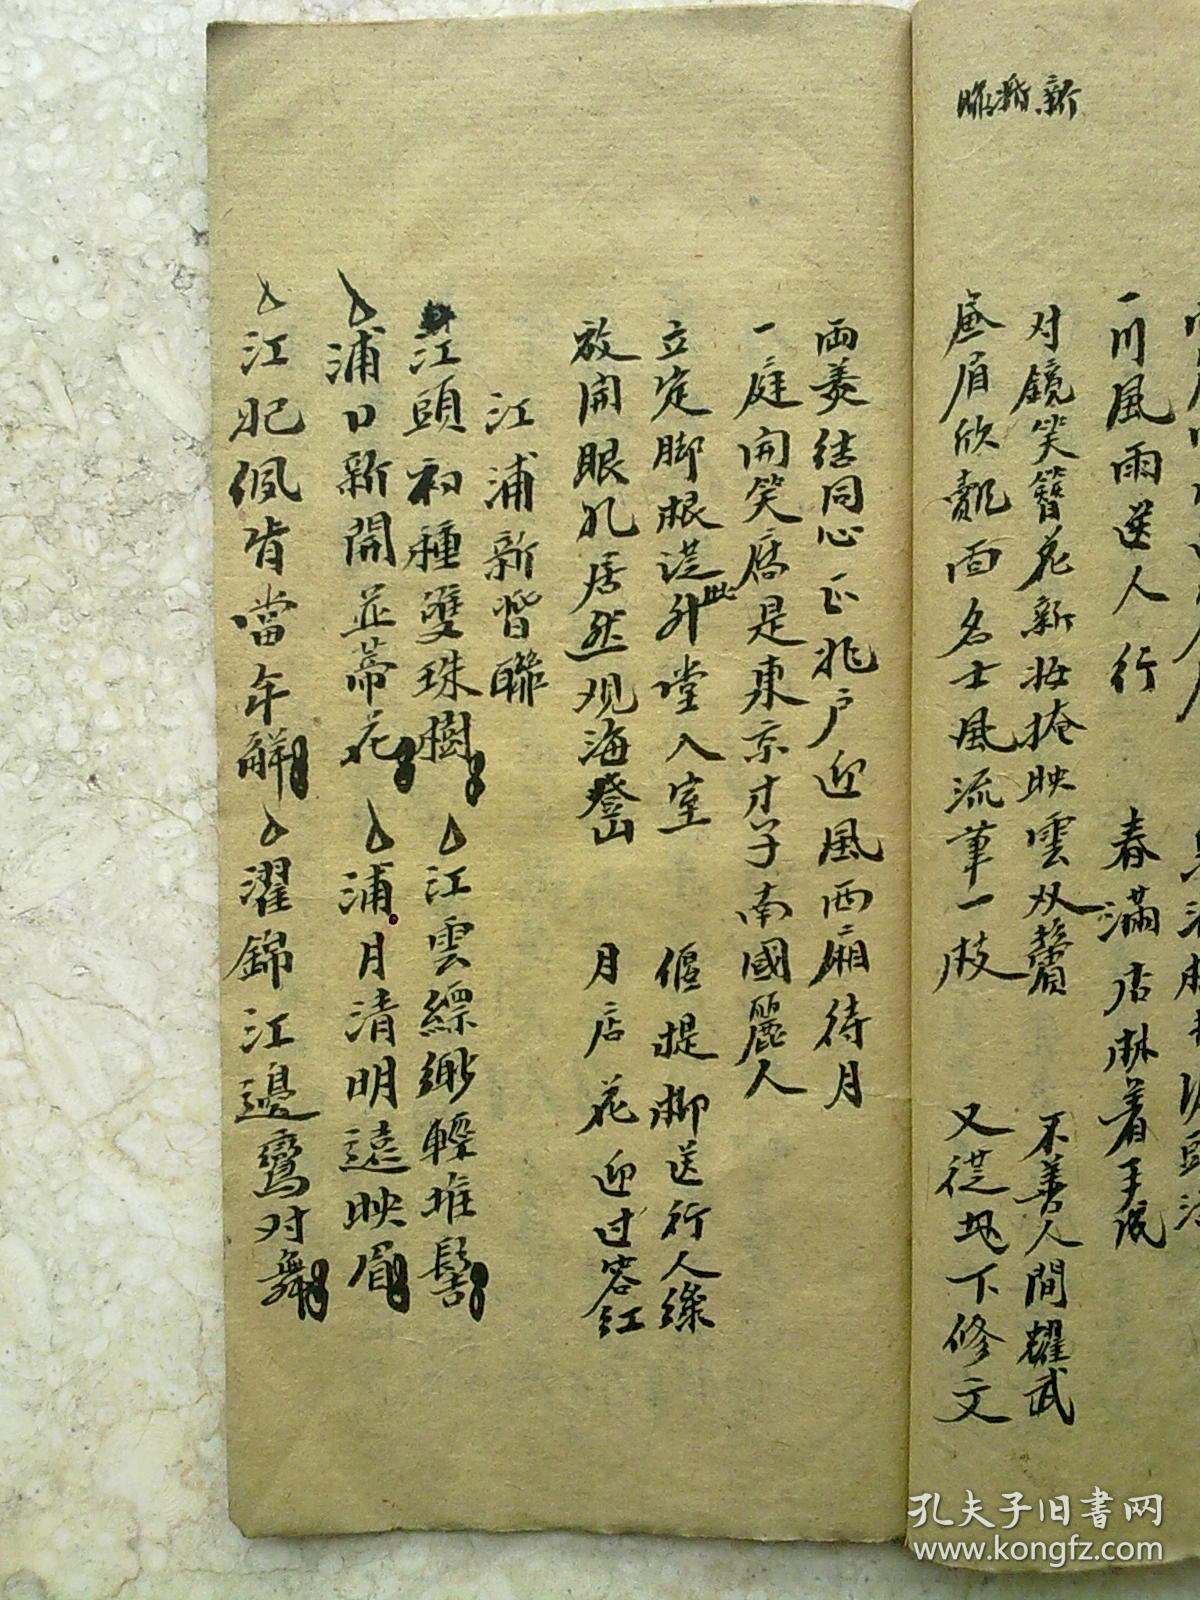 新婚
一川風雨送人行　春滿
对鏡笑簪花新妝掩映雲双鬢　不善人間耀武
眉欣觀面名士風流筆一枝　又從地下修文
兩美结同心正兆户迎風西廂待月
一庭闹笑唇是東京才子南國麗人
立定脚根從此升堂入室　偃提柳送行人綠
放開眼孔居然观海登山　月店花迎过客红
江浦新婚聯
江頭初種雙珠樹　江雲縹緲輕堆髻
浦口新開並蒂花　浦月清明遠映眉
江妃佩肯當年解　濯錦江邊鸞对舞
孔夫子旧书网
www.kongfz.com